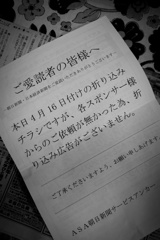 ご愛読者の皆様へ
本日4月16日付けの折り込み
チラシですが、各スポンサー様
からのご依頼が無かった為、折
り込み広告がございません。
ご了承くださいますよう、お願い申し上げます。
ASA朝日新聞サービスアンカー